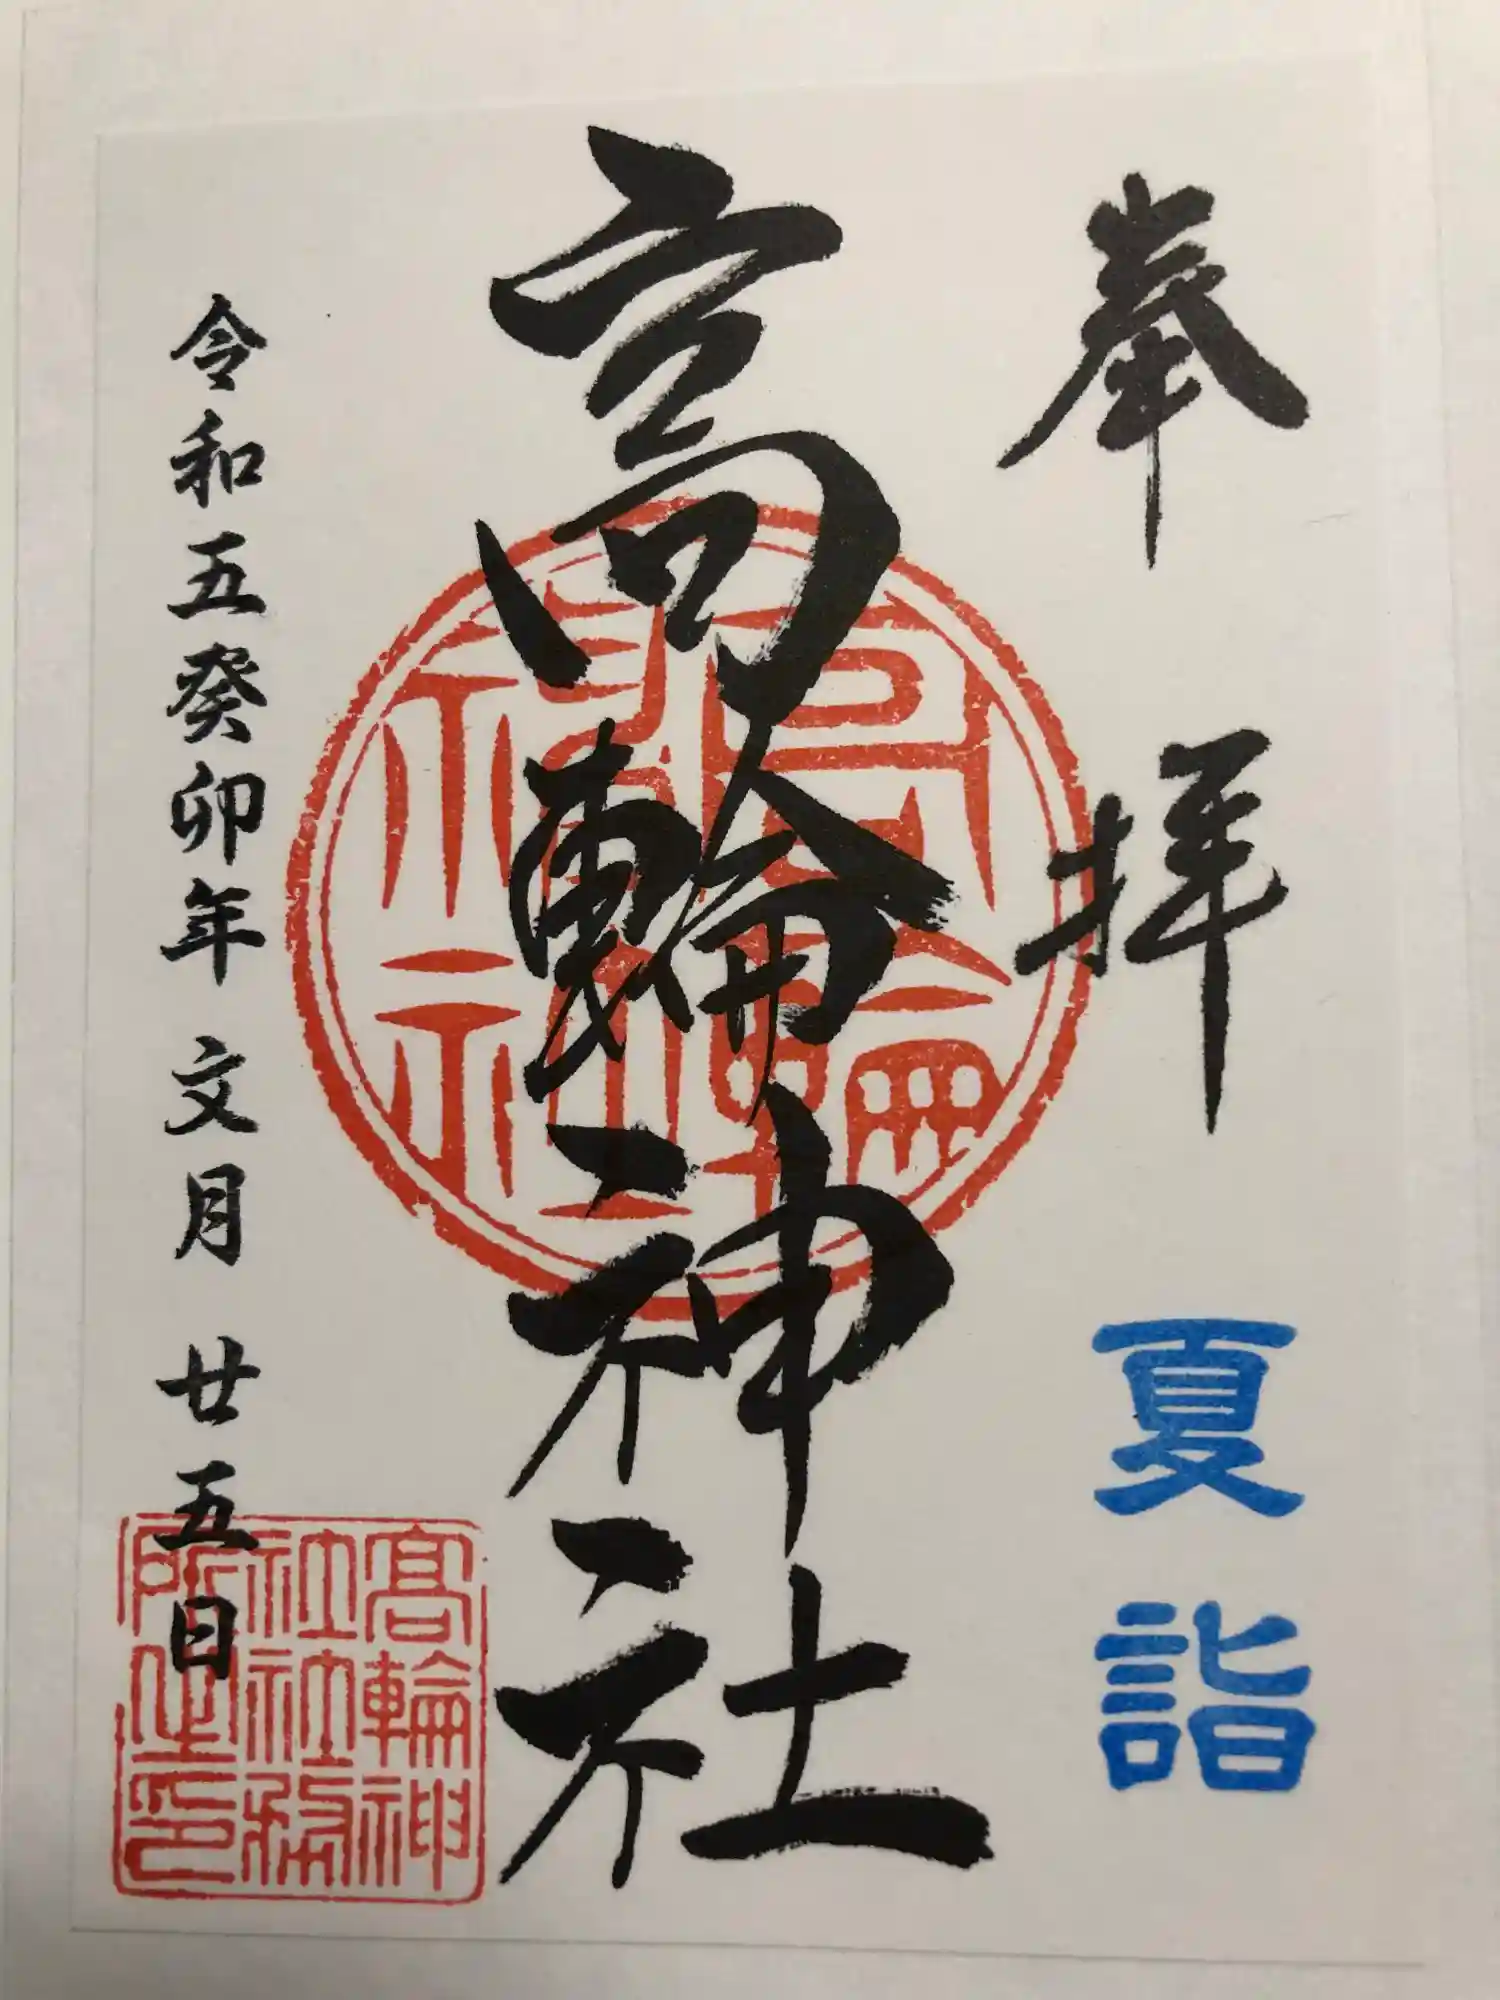 奉拝
夏詣
高輪神社
令和五癸卯年 文月 廿五日
高輪神社
高輪神
社社務
所之印